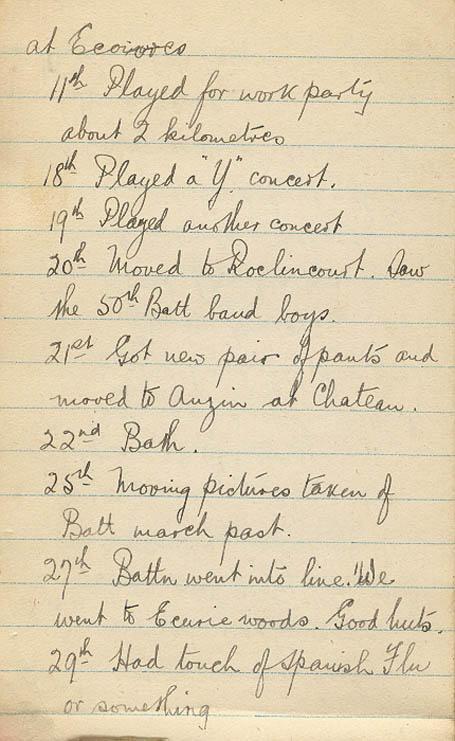 at Ecoivres
11th Played for work party
about 2 kilometres
18th Played a "Y" concert.
19th Played another concert
20th Moved to Roclincourt. Saw
the 50th Batt band boys.
21st Got new pair of pants and
moved to Anzin at Chateau.
22nd Bath.
25th Moving pictures taken of
Batt march past.
27th Battn went into line. We
went to Ecurie woods. Good huts.
29th Had touch of Spanish Flu
or something